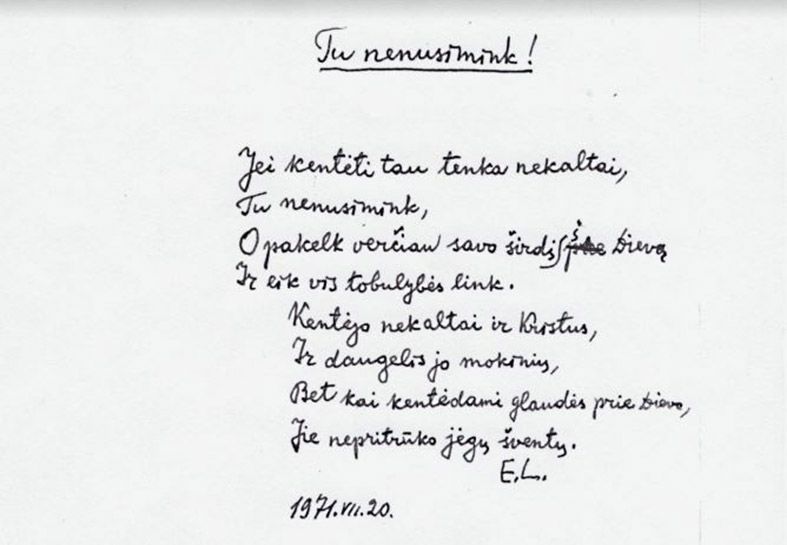 Tu nenusimink!
Jei kentėti tau tenka nekaltai,
Tu nenusimink,
O pakelk verčiau savo širdį į Dievą
Ir eik vis tobulybės link.
Kentėjo nekaltai ir Kristus,
Ir daugelis jo mokinių,
Bet kai kentėdami glaudės prie Dievo,
Jie nepritrūko jėgų šventų.
E.L.
1971.VII.20.